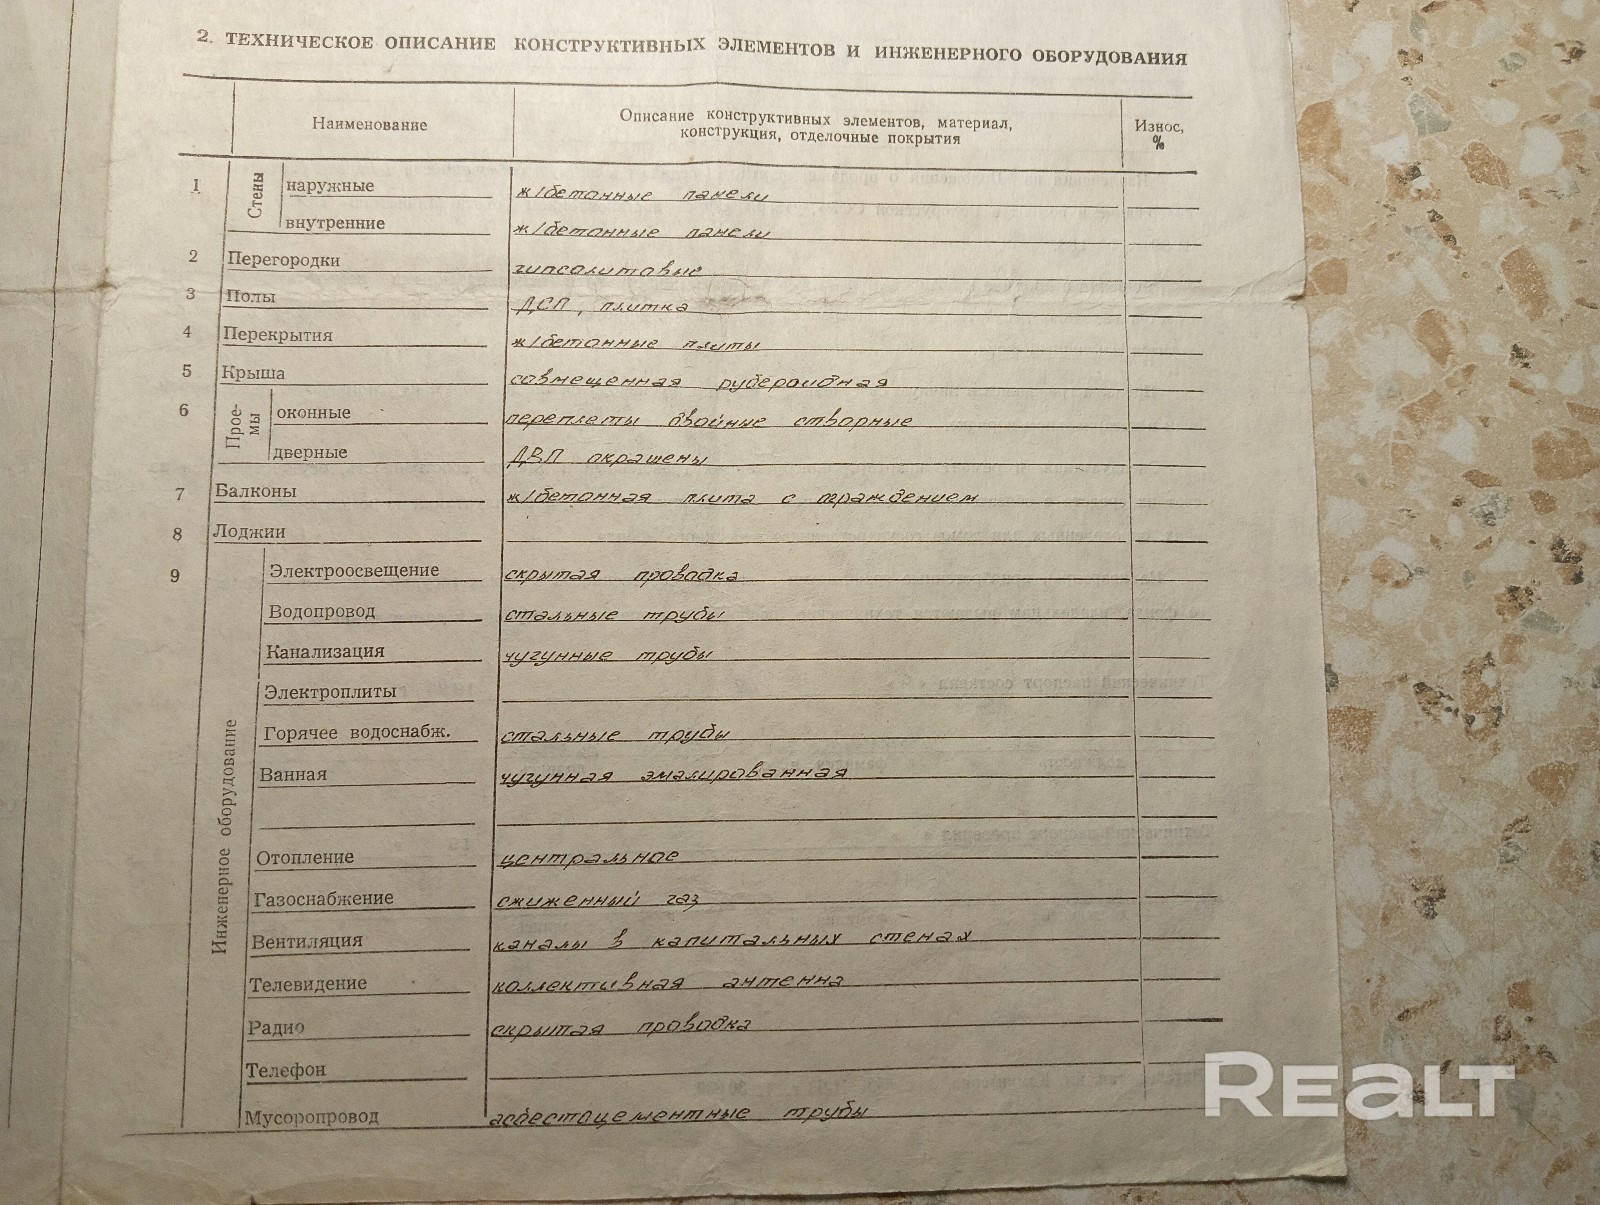 2. ТЕХНИЧЕСКОЕ ОПИСАНИЕ КОНСТРУКТИВНЫХ ЭЛЕМЕНТОВ И ИНЖЕНЕРНОГО ОБОРУДОВАНИЯ
Наименование
Описание конструктивных элементов, материал,
конструкция, отделочные покрытия
Износ,
%
1 Стены наружные ж/бетонные панели
внутренние ж/бетонные панели
2 Перегородки гипсолитовые
3 Полы ДСП, плитка
4 Перекрытия ж/бетонные плиты
5 Крыша совмещенная рубероидная
6 Прое-
мы
оконные переплеты двойные створные
дверные ДВП окрашены
7 Балконы ж/бетонная плита с ограждением
8 Лоджии
9 Инженерное оборудование
Электроосвещение скрытая проводка
Водопровод стальные трубы
Канализация чугунные трубы
Электроплиты
Горячее водоснабж. стальные трубы
Ванная чугунная эмалированная
Отопление центральное
Газоснабжение сжиженный газ
Вентиляция каналы в капитальных стенах
Телевидение коллективная антенна
Радио скрытая проводка
Телефон
Мусоропровод асбестоцементные трубы
REALT